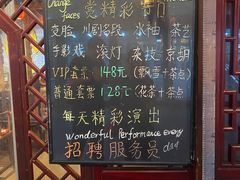 Change faces 赏精彩节目
变脸 川剧合段 水袖 茶艺
手影戏 滚灯 杂技 京胡
VIP套票 148元 (飘雪+茶点)
普通套票 128元 (花茶+茶点)
每天精彩演出
wonderful Performance Every day
招聘服务员